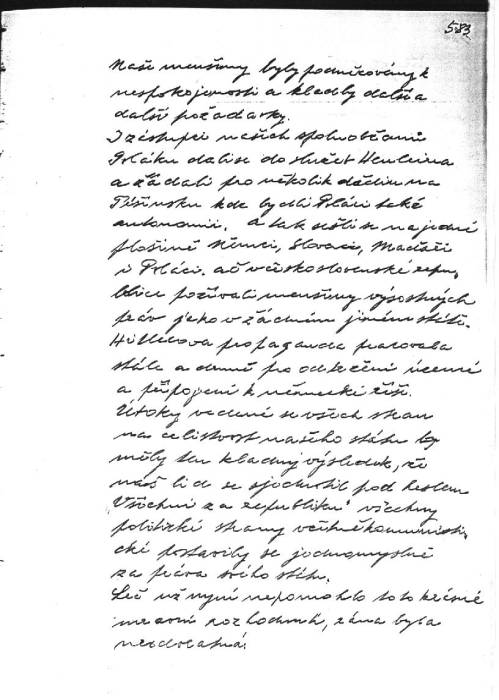 583
Naše menšiny byly podněcovány k
nespokojenosti a kladly další a
další požadavky.
I zástupci našich spoluobčanů
Poláků dali se do služeb Henleina
a žádali pro několik dědin na
Těšínsku kde bydlí Poláci také
autonomii. A tak sešli se na jedné
plošině Němci, Slováci, Maďaři
i Poláci. ač v československé repu
blice požívali menšiny výsostných
práv jako v žádném jiném státě.
Hitlerova propaganda pracovala
stále a denně pro odtržení území
a připojení k německé říši.
Útoky vedené se všech stran
na celistvost našeho státu by
měly ten kladný výsledek, že
náš lid se sjednotil pod heslem
"Všichni za republiku" všechny
politické strany včetně komunisti
cké postavily se jednomyslně
za práva svého státu.
Leč už nyní nepomohlo toto krásné
mravní rozhodnutí, rána byla
nezdolatná.